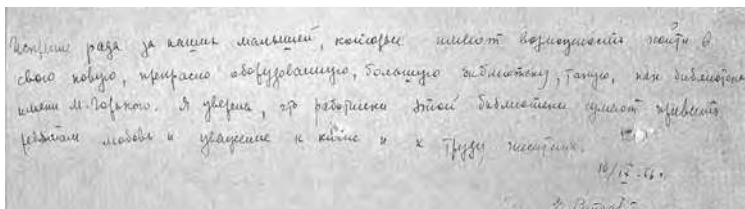 Искренне рада за наших малышей, которые имеют возможность пойти в
свою новую, прекрасно оборудованную, большую библиотеку, такую, как библиотека
имени М. Горького. Я уверена, что работники этой библиотеки сумеют привить
ребятам любовь и уважение к книге и к труду писателя.